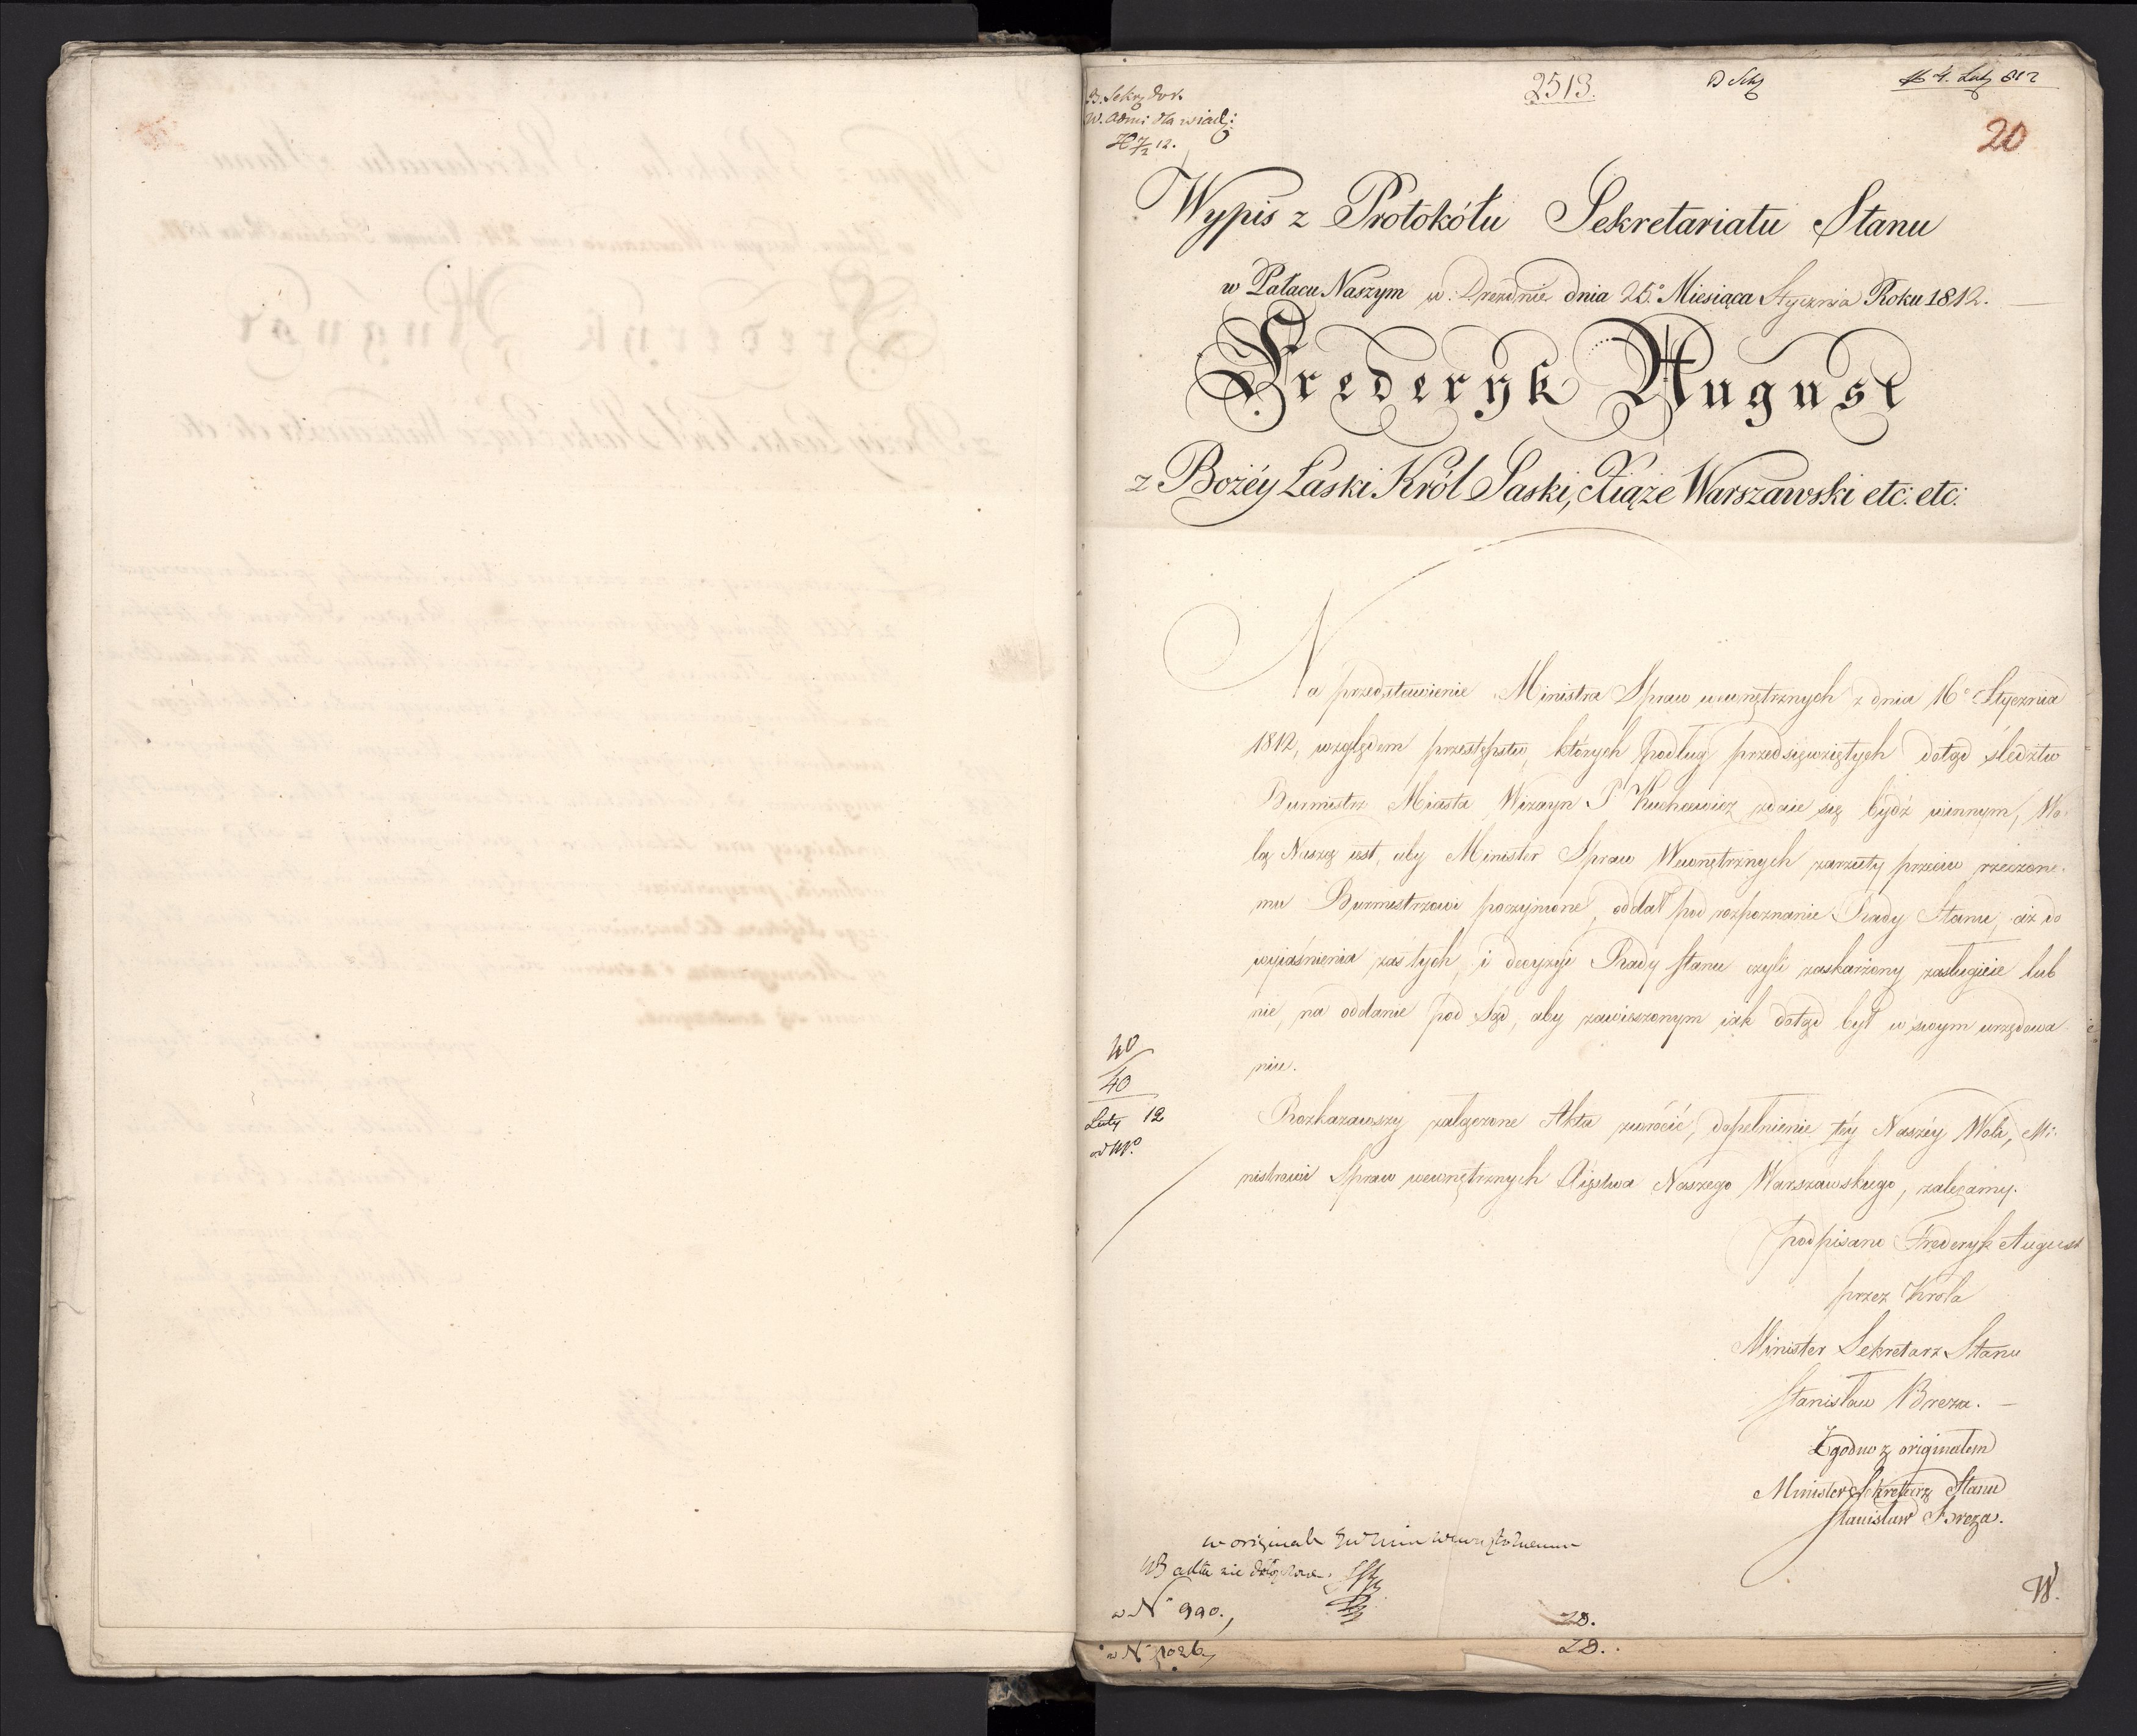 2513.
4. Luty 812
20
W. Admi dla wiad:
Wypis z Protokółu Sekretariatu Stanu
w Pałacu Naszym w: Dreźdnie dnia 25.° Miesiąca Stycznia Roku 1812.
Frederyk August
z Bożéy Łaski Król Saski, Xiąże Warszawski etc: etc:
Na przedstawienie Ministra Spraw wewnętrznych z dnia 16° Stycznia
1812, względem przestępstw, których podług przedsięwziętych dotąd śledztw
Burmistrz Miasta Wizayn P Kuchcewicz zdaie się bydź winnym, Wo-
lą Naszą iest, aby Minister Spraw Wewnętrznych zarzuty przeciw rzeczone-
mu Burmistrzowi poczynione, oddał pod rozpoznanie Rady Stanu, aż do
wyiaśnienia zaś tych, i decyzyi Rady stanu czyli zaskarżony zasługuie lub
nie, na oddanie pod Sąd, aby zawieszonym iak dotąd był w swym urzędowa-
niu.
40
40
Luty 12
Rozkazawszy załączone Akta zwrócić, dopełnienie téy Naszéy Woli, Mi-
nistrowi Spraw wewnętrznych Xięstwa Naszego Warszawskiego, zalecamy.
podpisano Frederyk August
przez Króla
Minister Sekretarz Stanu
Stanisław Breza. —
Zgodno z originałem
Minister Sekretarz Stanu
Stanisław Breza.
w originale
NB akta nie
w N° 990.,
w N° 1026,
W.